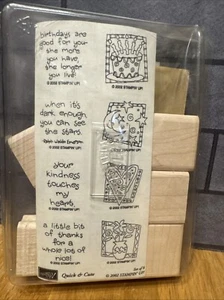 birthdays are
good for you-
the more
you have,
the longer
you live!
© 2002 STAMPIN' UP!
© 2002 STAMPIN' UP!
when it's
dark enough,
you can see
the stars.
Ralph Waldo Emerson
© 2002 STAMPIN' UP!
© 2002 STAMPIN' UP!
your
kindness
touches my
heart.
© 2002 STAMPIN' UP!
© 2002 STAMPIN' UP!
a little bit
of thanks
for a
whole lot of
nice!
© 2002 STAMPIN' UP!
© 2002 STAMPIN' UP!
Quick & Cute
Set of 8
© 2002 STAMPIN' UP!